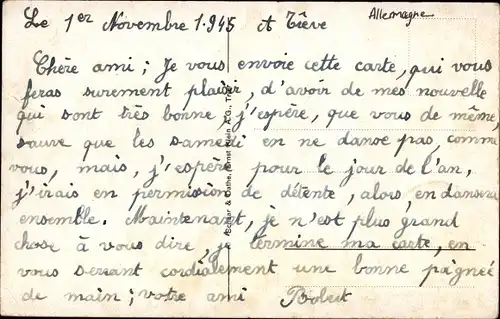 Le 1er Novembre 1.945 A Trêve Allemagne
Chère ami ; Je vous envoie cette carte, qui vous
feras surement plaisir, d'avoir de mes nouvelle
qui sont très bonne, j'espère, que vous de même
sauve que les samedi en ne danse pas, comme
vous, mais, j'espère pour le jour de l'an,
j'irais en permission de détente, alors, en dansera
ensemble. Maintenant, je n'est plus grand
chose à vous dire, je termine ma carte, en
vous serrant cordialement une bonne pognée
de main ; votre ami Robert